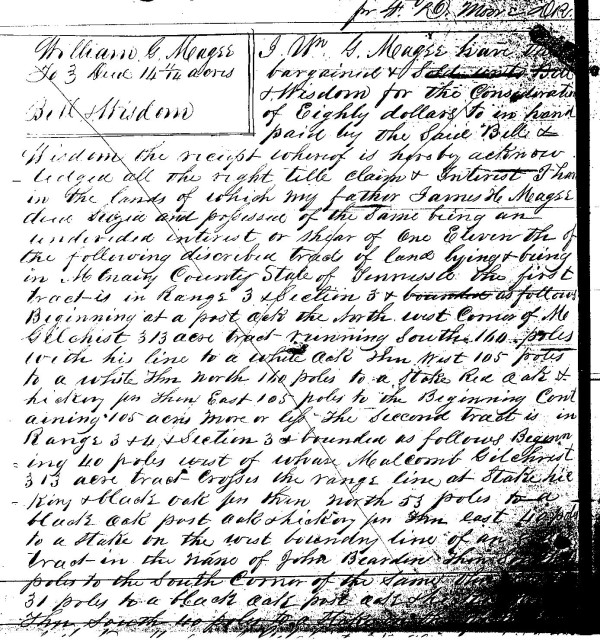 for H. R. Moore D.R.
William G. Magee
To 3 Deed 14 4/11 acres
Bell & Wisdom
I Wm G. Magee have this
bargained & Sold unto Bell
& Wisdom for the Consideration
of Eighty dollars to in hand
paid by the Said Bell &
Wisdom the receipt whereof is hereby acknow
ledged all the right title claim & Interest I have
in the lands of which my father James H. Magee
decd seized and possessed of the Same being an
undivided interest or shear of One Eleventh of
the following discribed tracts of land lying & being
in McNairy County State of Tennessee the first
tract is in Range 3 & Section 3 & bounded as follows
Beginning at a post oak the North west Corner of M
Gilchist 313 acre tract running South 160 poles
with his line to a white oak Thn West 105 poles
to a white Thn North 160 poles to a Stake Red Oak &
hickory pn Then East 105 poles to the Beginning Cont
aining 105 acres more or less The Second tract is in
Range 3 & 4 & Section 3 & bounded as follows Beginn
ing 40 poles west of whare Malcomb Gilchrist
313 acre tract Crosses the range line at Stake hic
kory & black oak pn then North 53 poles to a
black oak post oak & hickory pn Thn East 40 pols
to a Stake on the west boundry line of an
tract in the name of John Bearden Thn
poles to the South Corner of the Same
31 poles to a black oak post oak &
Thn South 40 poles to a Stake